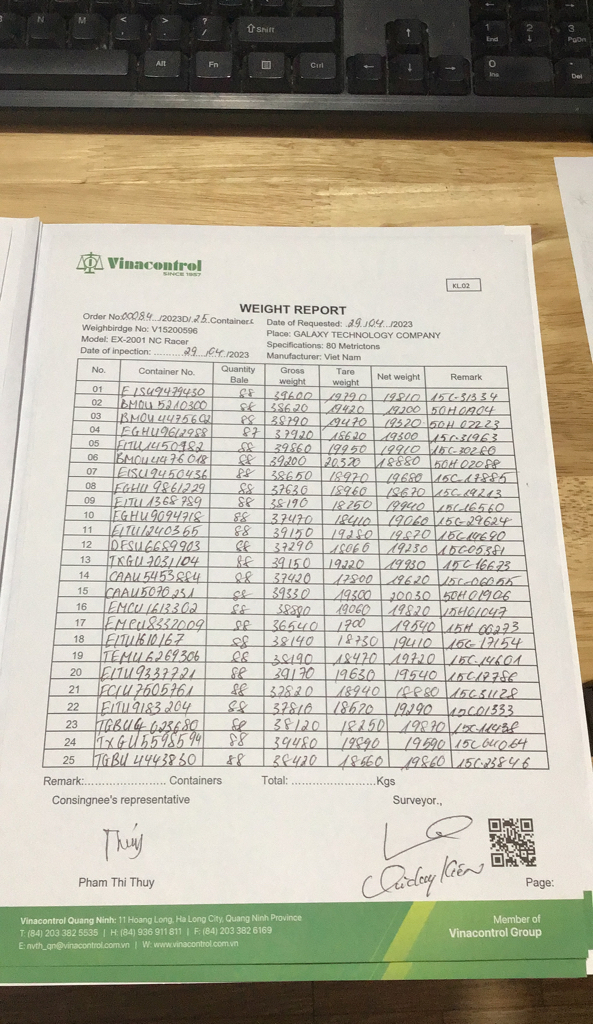 Shift
Alt
Fn
Ctrl
1
End
2
3
PgDn
0
Ins
Del
Vinacontrol
SINCE 1957
KL.02
WEIGHT REPORT
Order No:00084/2023D/.25.Containers Date of Requested: 29/04/2023
Weighbirdge No: V15200596 Place: GALAXY TECHNOLOGY COMPANY
Model: EX-2001 NC Racer Specifications: 80 Metrictons
Date of inpection: ..........29/04/2023 Manufacturer: Viet Nam
No. Container No. Quantity Bale Gross weight Tare weight Net weight Remark
01 EISU9479430 88 39600 19790 19810 15C-31334
02 BMOU 5210300 88 38620 19420 19200 50H0A04
03 BMOU4475602 88 38790 19470 19320 50H 02223
04 EGHU9612988 87 37920 18620 19300 15C-31963
05 EITU1450982 88 39860 19950 19910 15C-30280
06 BMOU4476048 88 39200 20320 18880 50H02088
07 EISU9450436 88 38650 18970 19680 15C-17885
08 EGHU 9861229 88 37630 18960 18670 15C-19213
09 EITU1368789 88 38190 18250 19940 15C16560
10 EGHU9094718 88 37470 18410 19060 15C-29624
11 EITU1240365 88 39150 19280 19870 15C14690
12 DFSU6689903 88 37290 18060 19230 15C05381
13 TXGU7031104 88 39150 19220 19930 15C-16673
14 CAAU5453884 88 37420 17800 19620 15C-06055
15 CAAU5070231 88 39330 19300 20030 50H01906
16 EMCU1613302 88 38880 19060 19820 15H01047
17 EMCU8332009 88 36540 1700 19540 15H 00273
18 EITU1610167 88 38140 18730 19410 15C-17154
19 TEMU6269306 88 38190 18470 19720 15C-14601
20 EITU9337721 88 39170 19630 19540 15C17786
21 FCIU7505761 88 37820 18940 18880 15C31128
22 EITU9183204 88 37810 18520 19290 15C01333
23 TGBU4023680 88 38120 18250 19870 15C-11438
24 TXGU5598594 88 39480 19890 19590 15C04064
25 TGBU 4443830 88 38420 18560 19860 15C-23846
Remark:...................... Containers Total: ......................Kgs
Consingnee's representative Surveyor.,
Thúy
Pham Thi Thuy
Page:
Vinacontrol Quang Ninh: 11 Hoang Long, Ha Long City, Quang Ninh Province
T: (84) 203 382 5535 | H: (84) 936 911 811 | F: (84) 203 382 6169
E: nvth_qn@vinacontrol.com.vn | W: www.vinacontrol.com.vn
Member of
Vinacontrol Group